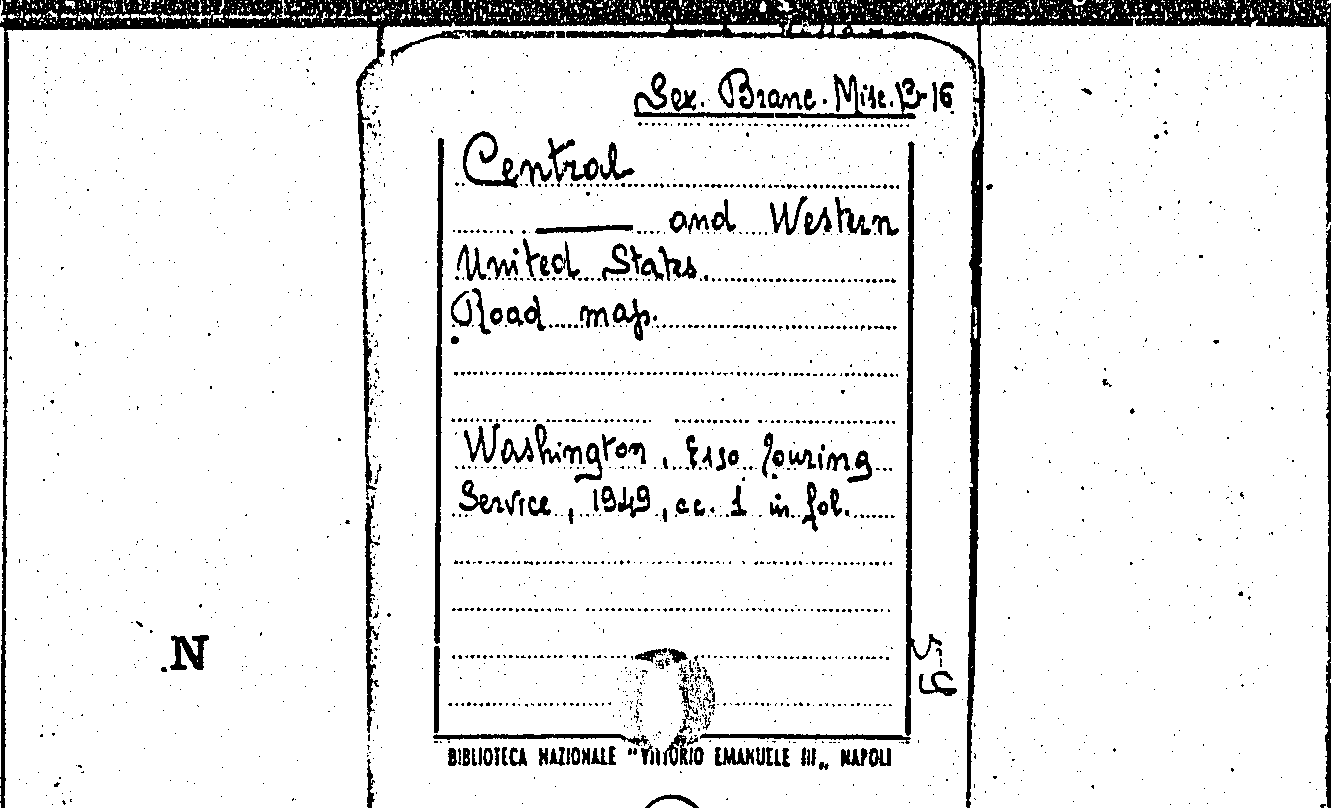 Sez. Branc. Misc. B-16
Central
and Western
United States.
Road map.
Washington, Esso Touring
Service, 1949, cc. 1 in fol.
N
BIBLIOTECA NAZIONALE "VITTORIO EMANUELE III„ NAPOLI